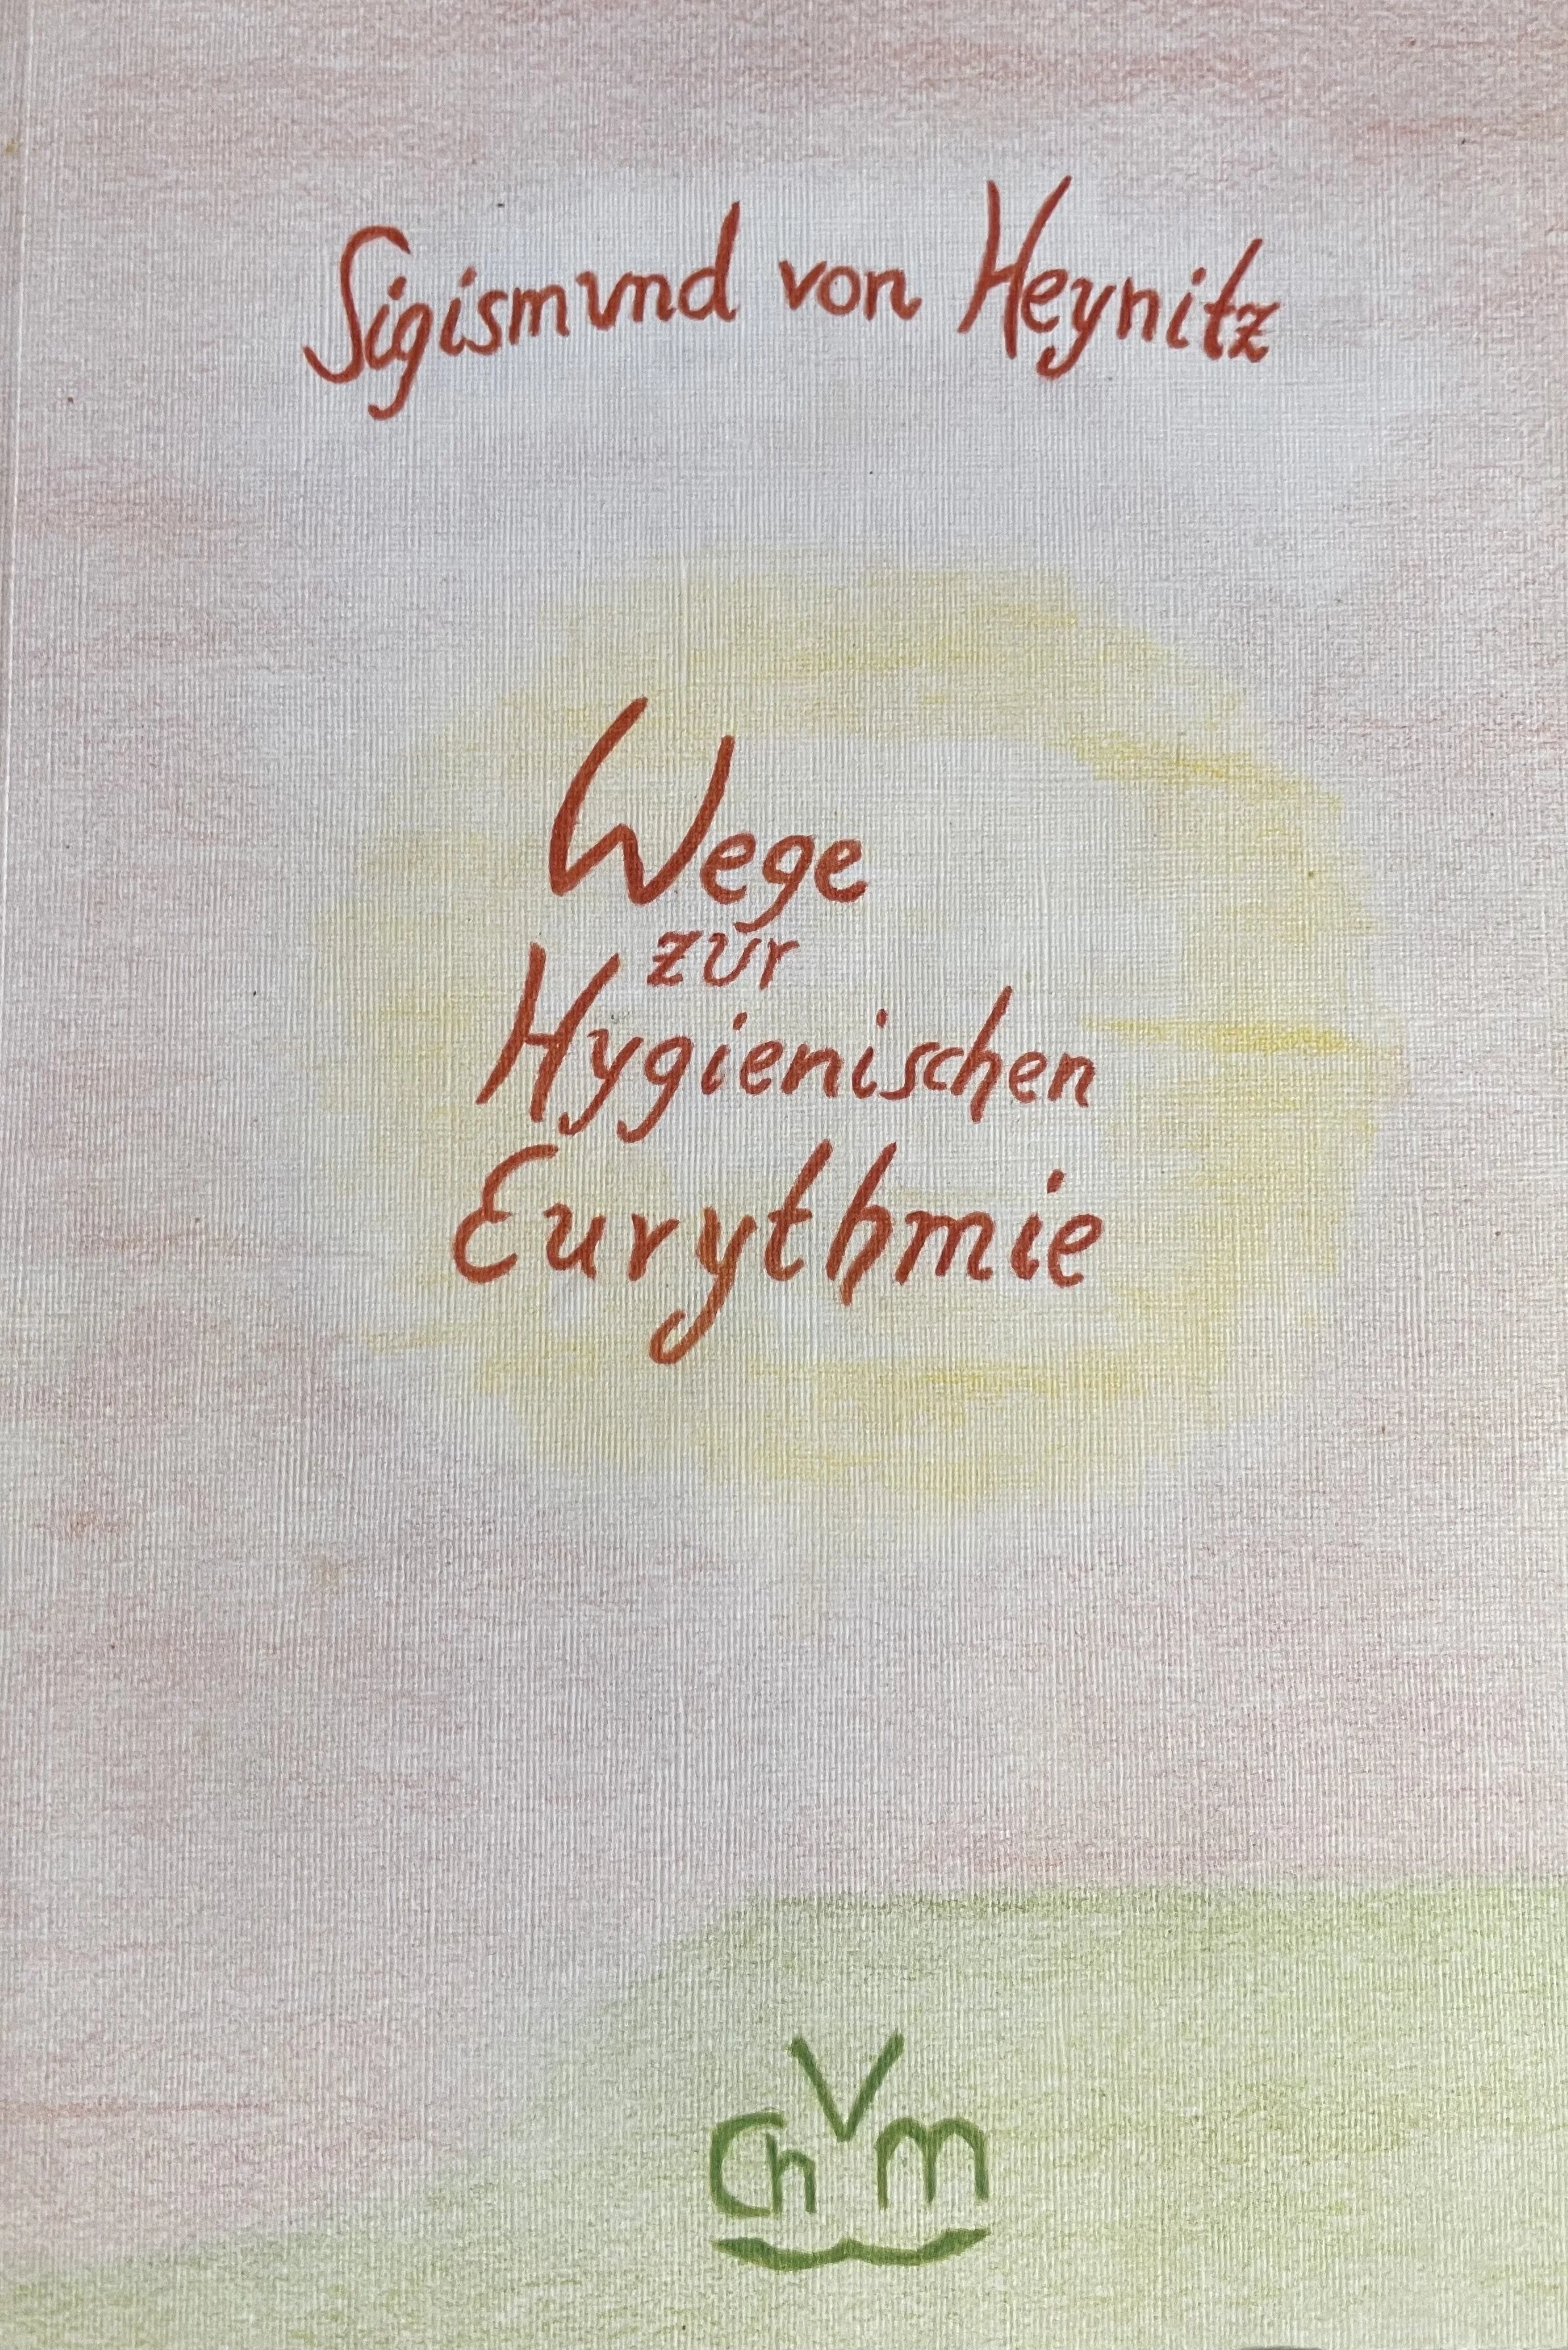 Sigismund von Heynitz
Wege
zur
Hygienischen
Eurythmie
V
Ch m